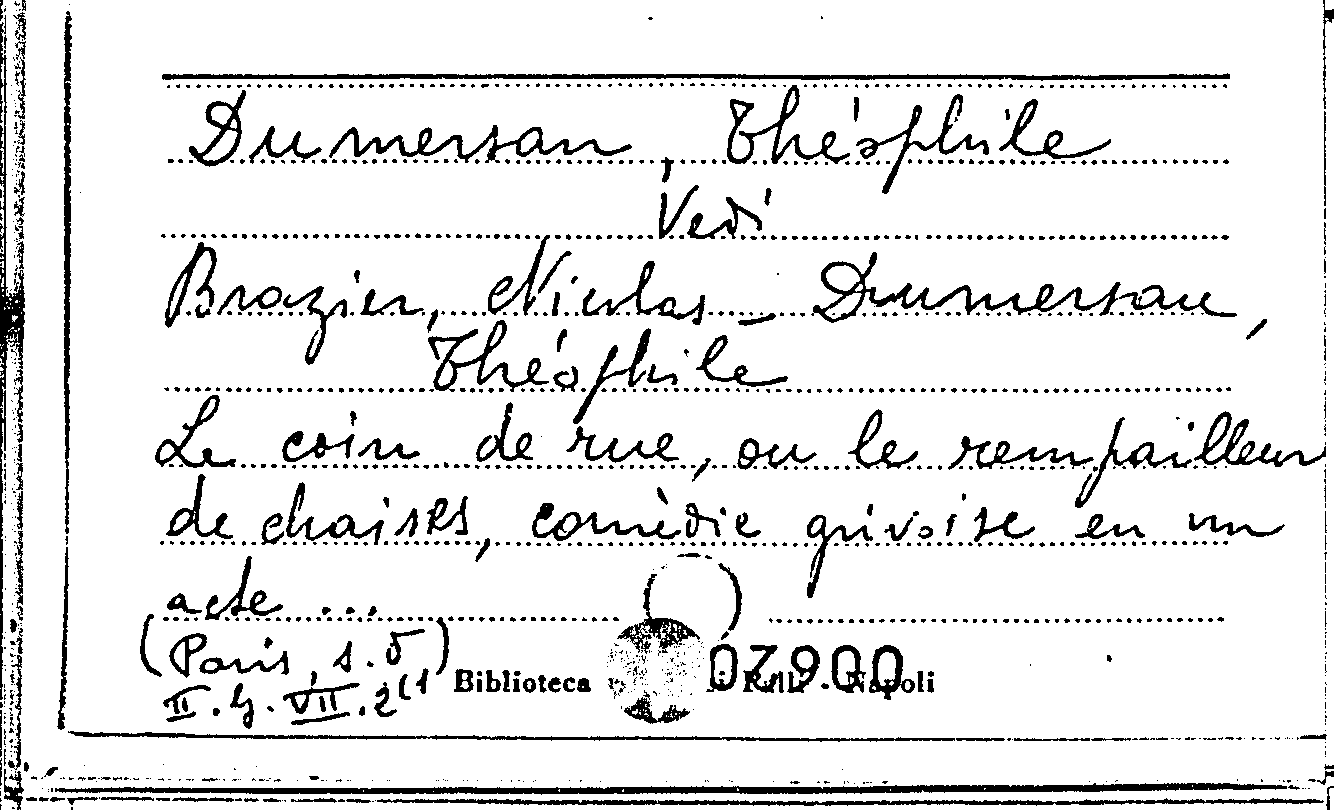 Dumersan, Théophile
Vedi
Brazier, Nicolas - Dumersan,
Théophile
Le coin de rue, ou le rempailleur
de chaises, comèdie grivoise en un
acte ...
(Paris, s.d)
II. G. VII. 2(1
Biblioteca Napoli
07900